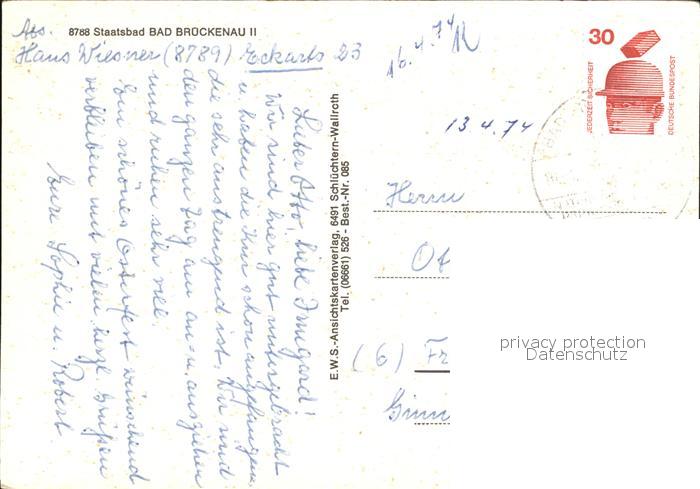 8788 Staatsbad BAD BRÜCKENAU II
Abs.
Hans Wiesner (8789) Eckarts 23
Lieber Otto, liebe Irmgard!
Wir sind hier gut untergebracht
u. haben die Kur schon angefangen,
die sehr anstrengend ist. Wir sind
den ganzen Tag am an- u. ausziehen
und ruhen sehr viel.
Ein schönes Osterfest wünschend
verbleiben mit vielen herzl. Grüßen
Eure Sophie u. Robert
E.W.S.-Ansichtskartenverlag, 6491 Schlüchtern-Wallroth
Tel. (06661) 526 - Best.-Nr. 085
16.4.74
13.4.74
30
JEDERZEIT SICHERHEIT
DEUTSCHE BUNDESPOST
Herrn
Ot
(6) Fr
Ginn
privacy protection
Datenschutz